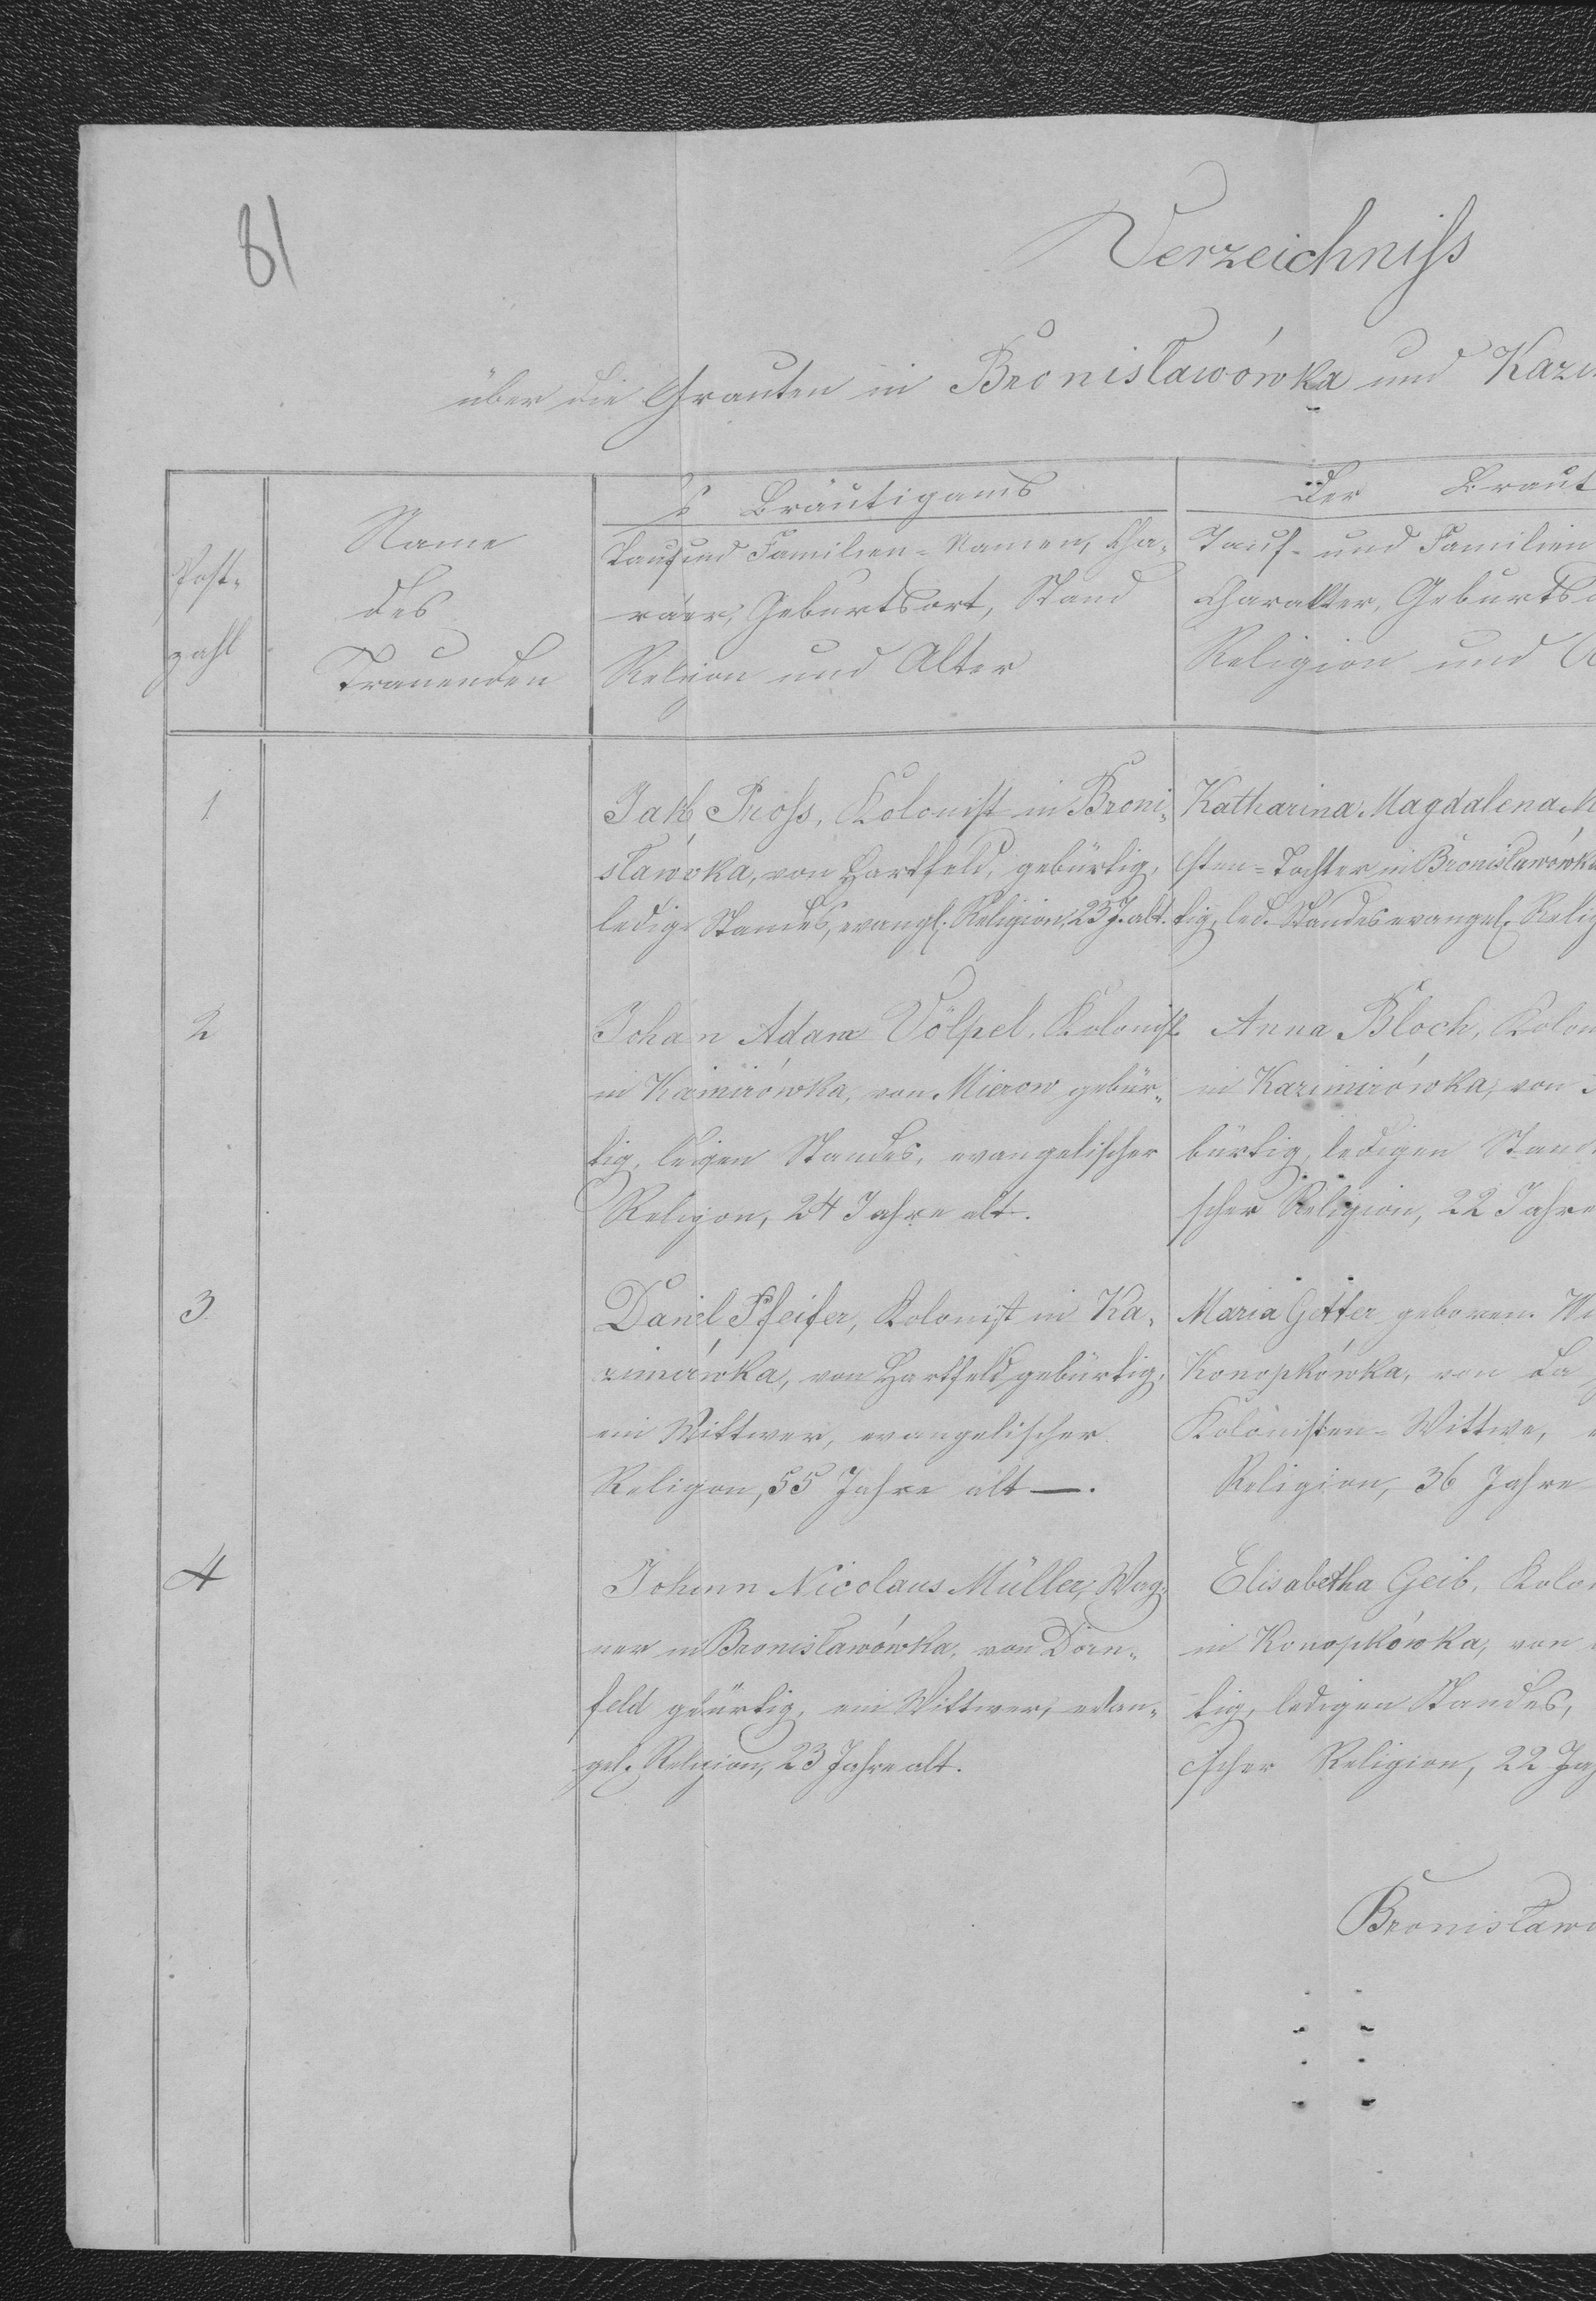 81
Verzeichniss
über die Grauten in Bronisławówka und Kazi
Post-
zahl
Name
des
Trauenden
s Bräutigams
Tauf und Familien-Namen, Cha-
racer, Geburtsort, Stand
Relion und Alter
der Braut
Tauf- und Familien
Charakter, Geburtso
Religion und A
1
Jakb Pross, Kolonist in Broni-
sławóka, von Hartfeld, gebürtig,
ledig Standes, evangl. Religion, 25 J. alt.
Katharina Magdalena M
sten-Tochter in Bronisławówka
tig, led. Standes evangel. Relig
2
Johan Adam Völpel, Kolonist
in Kamirówka, von Mierow gebür-
tig, leigen Standes, evangelischer
Religon, 24 Jahre alt.
Anna Bloch, Kolon
in Kazimirówka, von
bürtig, ledigen Stand
scher Religion, 22 Jahre
3
Daniel Pfeifer, Kolonist in Ka-
zimirówka, von Hartfeld gebürtig,
ein Wittwer, evangelischer
Religon, 55 Jahre alt —.
Maria Gotter geboren. W
Konopkówka, von La
Kolonisten-Wittwe, e
Religion, 36 Jahre
4
Johann Nicolaus Müller, Wag-
ner in Bronisławówka, von Dorn-
feld gbürtig, ein Wittwer, evan-
gel. Religion, 23 Jahre alt.
Elisabetha Geib, Kolon
in Konopkówka, von
tig, ledigen Standes,
scher Religion, 22 Ja
Bronisławó